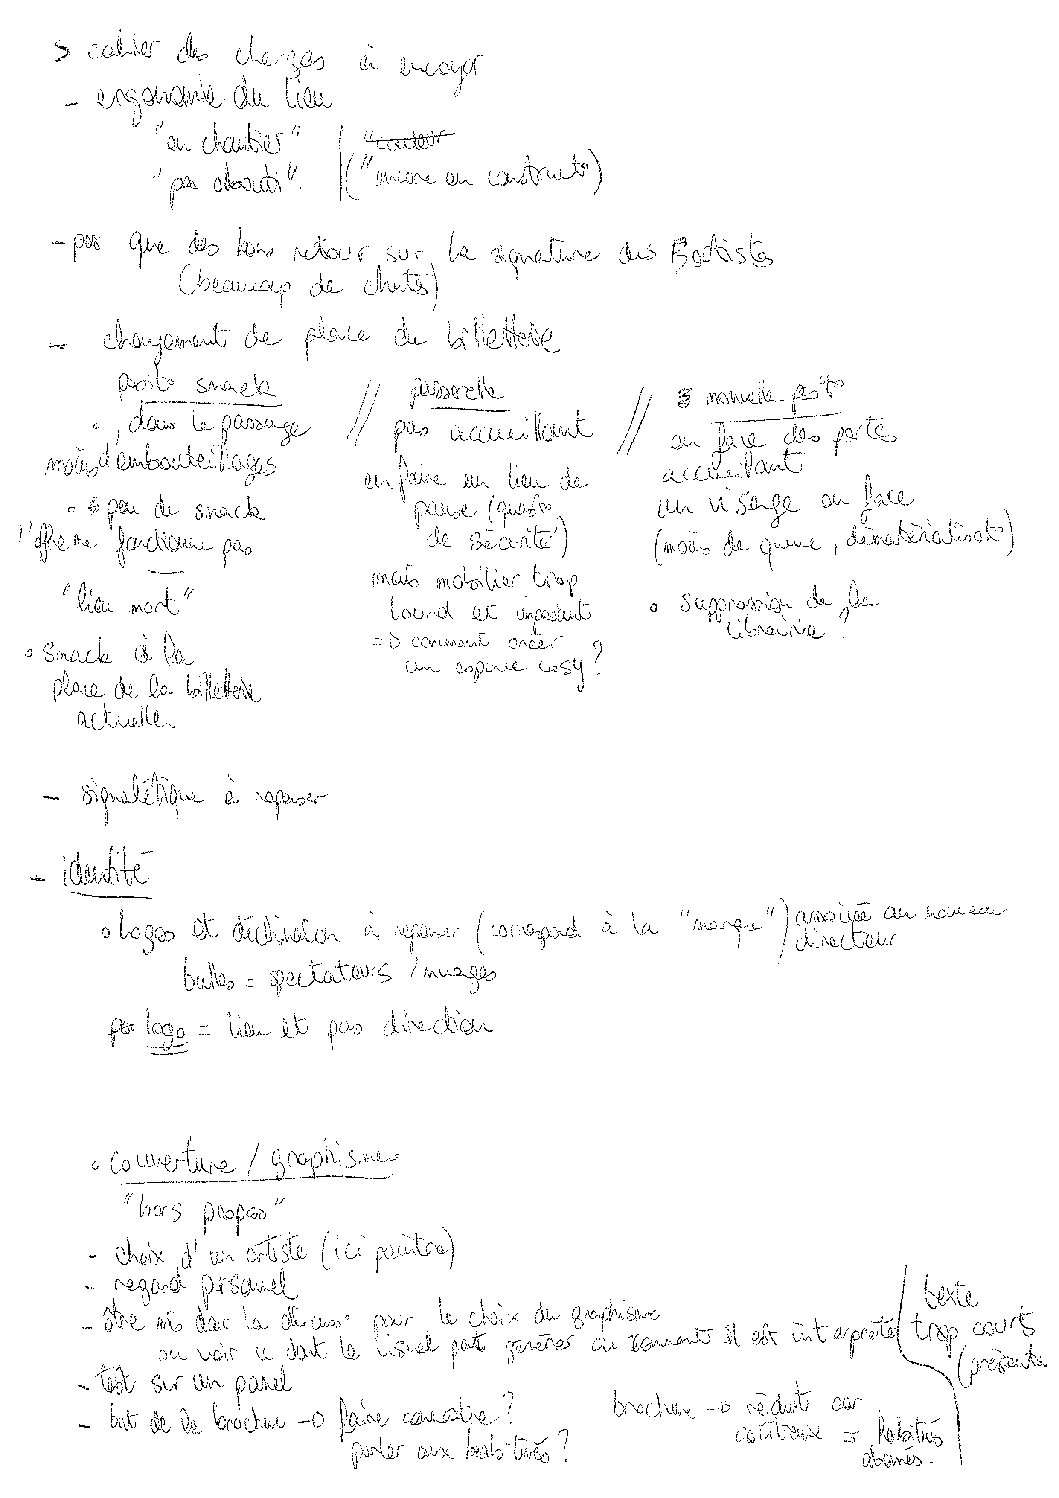 > cahier des charges à
- ergonomie du lieu
"en chantier"
"pas abouti".
("encore en construct°")
- pas que des bons retour sur la signature des Baptistes
(beaucoup de chutes)
- changement de place de billetterie
posit° snack
°, dans le passage
moins d'embouteillages
° peu de snack
l'offre ne fonctionne pas
"lieu mort"
° snack à la
place de la billetterie
actuelle
// passerelle
pas accueillant
en faire un lieu de
pause (quest°
de sécurité)
mais mobilier trop
lourd et imposant
=> comment créer
un espace cosy ?
// nouvelle posit°
en face des portes
accueillant
un visage en face
(moins de queue, dématérialisat°)
° suppression de la
librairie ?
- signalétique à repenser
- identité
° logos et déclinaison à repenser (correspond à la "marque") associée au nouveau
directeur
bulles = spectateurs / nuages
logo = lieu et pas direction
° couverture / graphisme
"hors propos"
- choix d'un artiste (ici peintre)
- regard personnel
- être mis dans la pour le choix du graphisme
ou voir ce dont le visuel peut générer comment il est interprété
- test sur un panel
- but de la brochure -> faire connaître ?
parler aux habitués ?
texte
trop courts
(présenta
brochure -> réduit car
coûteuse = habitués
abonés.